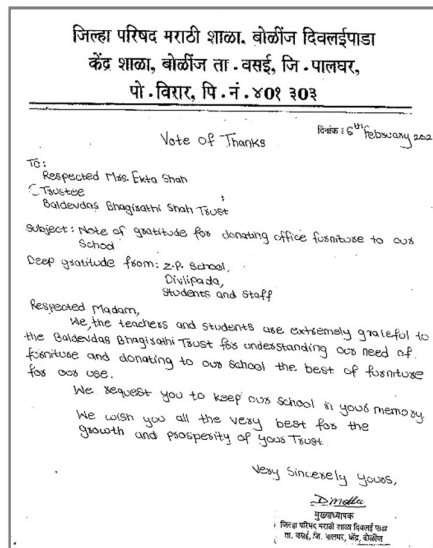 जिल्हा परिषद मराठी शाळा. बोळींज दिवलईपाडा
केंद्र शाळा, बोळींज ता. वसई, जि. पालघर,
पो. विरार, पि. नं. ४०१ ३०३
दिनांक : 6th February 202
Vote of Thanks
To:
Respected Mrs. Ekta Shah
(Trustee
Baldevdas Bhagirathi Shah Trust
Subject: Note of gratitude for donating office furniture to our
School
Deep gratitude from: Z.P. School,
Divlipada,
Students and Staff
Respected Madam,
We, the teachers and students are extremely grateful to
the Baldevdas Bhagirathi Trust for understanding our need of
furniture and donating to our school the best of furniture
for our use.
We request you to keep our school in your memory
We wish you all the very best for the
growth and prosperity of your Trust.
Very Sincerely Yours,
मुख्याध्यापक
जिल्हा परिषद मराठी शाळा दिवलई पाडा
ता. वसई, जि. पालघर, केंद्र, बोळींज